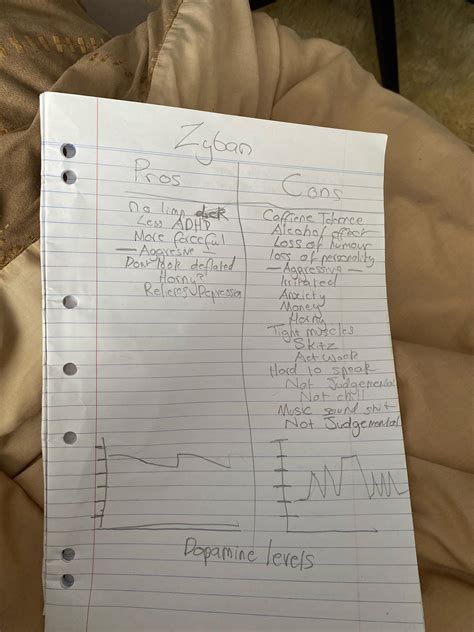 Zyban
Pros
no limp dick
Less ADHD
More forceful
— Aggresive —
Dont look deflated
Horny?
Relieves Depression
Cons
Caffiene Tolerence
Alcohol effect
Loss of humour
loss of personality
— Aggressive —
Irritated
Anxiety
Money
Horny
Tight muscles
Skitz
At work
Hard to speak
Not Judgemental
Not chill
Music sound shit
Not Judgemental
Dopamine levels